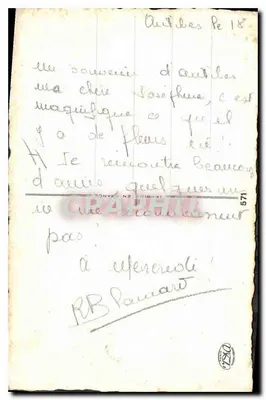 Antibes le 18
un souvenir d'antibes
ma chère Joséphine, c est
magnifique ce qu'il
y a de fleurs ici!
Je rencontre beaucoup
d'amies quelques un
ne me reconnaissent
pas!
à Mercredi!
RB
571